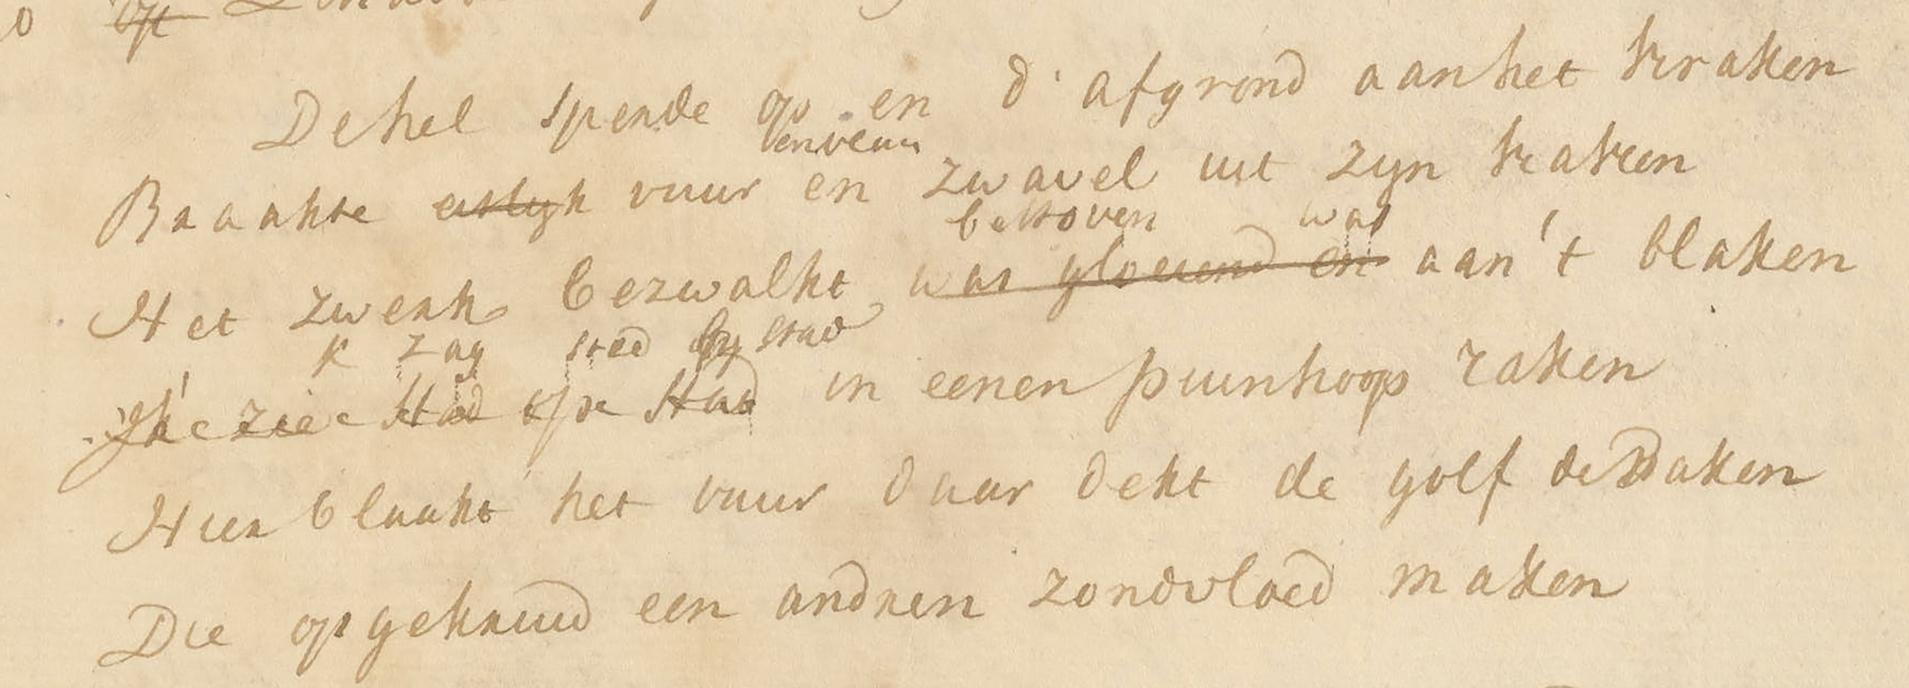 De hel spende op en d' afgrond aan het kraken
Braakte aislyk vuur en zwavel uit zyn kaken
bestoven was
Het zwerk bezwalkt was gloeiend en aan 't blaken
k zag stad by stad
Ik zie stad op stad in eenen puinhoop raken
Hier blaakt het vuur daar dekt de golf de Daken
Die opgekruid een andren zondvloed maken